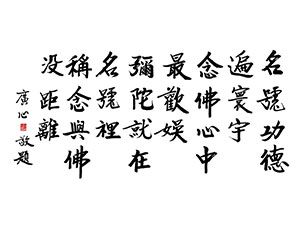 名號功德
遍寰宇
念佛心中
最歡娛
彌陀就在
名號裡
稱念與佛
没距離
廣心敬題